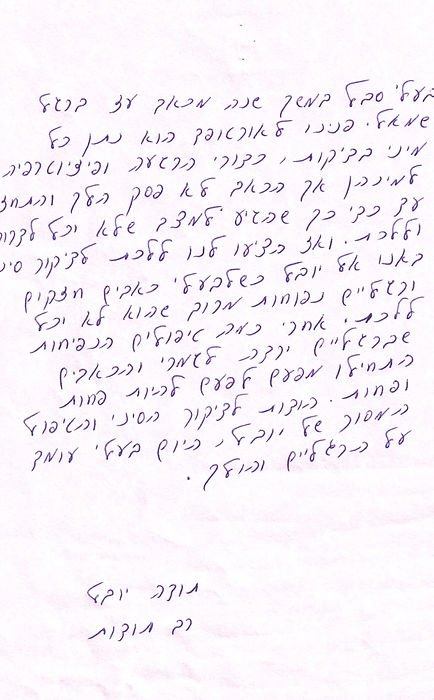 בעלי סבל במשך שנה מכאב עז ברגל
שמאל. פנינו לאורטופד הוא נתן כל
מיני בדיקות, כדורי הרגעה ופיזיוטרפיה
למיניהן אך הכאב לא פסק הלך והתחזק
עד כדי כך שהגיע למצב שלא יכל לדרוך
וללכת. ואז הציעו לנו ללכת לדיקור סיני
באנו אל יובל כשלבעלי כאבים חזקים
ורגליים נפוחות מרוב שהוא לא יכל
ללכת. אחרי כמה טיפולים הנפיחות
שברגליים ירדה לגמרי והכאבים
התחילו מפעם לפעם להיות פחות
ופחות. הודות לדיקור הסיני והטיפול
המסור של יובל, היום בעלי עומד
על הרגליים והולך.
תודה יובל
רב תודות